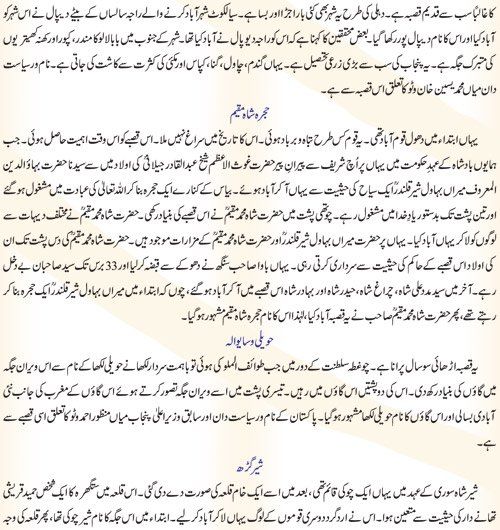 کا غالباً سب سے قدیم قصبہ ہے۔ دہلی کی طرح یہ شہر بھی کئی بار اجڑا اور بسا ہے۔ سیالکوٹ شہر آباد کرنے والے راجہ سالسان کے بیٹے دیپال نے اس شہر کو
آباد کیا اور اس کا نام دیپال پور رکھا گیا۔ بعض محققین کا کہنا ہے کہ اس کو راجہ دیو پال نے آباد کیا تھا۔ شہر کے جنوب میں بابا لالو کا مندر، کپور اور کھنہ کھیتریوں
کی متبرک جگہ ہے۔ یہ پنجاب کی سب سے بڑی زرعی تحصیل ہے۔ یہاں گندم، چاول، گنا، کپاس اور مکئی کی کثرت سے کاشت کی جاتی ہے۔ نام ور سیاست
دان میاں محمد یٰسین خان وٹو کا تعلق اس قصبہ سے ہے۔
حجرہ شاہ مقیم
یہاں ابتداء میں دھول قوم آباد تھی۔ یہ قوم کس طرح تباہ و برباد ہوئی۔ اس کا تاریخ میں سراغ نہیں ملا۔ اس قصبے کو اس وقت اہمیت حاصل ہوئی۔ جب
ہمایوں بادشاہ کے عہدِ حکومت میں یہاں پر اُچ شریف سے پیرانِ پیر حضرت غوث الاعظم شیخ عبدالقادر جیلانیؒ کی اولاد میں سے سیدنا حضرت بہاؤ الدین
المعروف میراں بہاول شیر قلندرؒ ایک سیاح کی حیثیت سے یہاں آ کر آباد ہوئے۔ بیاس کے کنارے ایک حجرہ بنا کر اللہ تعالیٰ کی عبادت میں مشغول ہو گئے
اور تین پشت تک بدستور یادِ خدا میں مشغول رہے۔ چوتھی پشت میں حضرت شاہ محمد مقیمؒ نے اس قصبے کی بنیاد رکھی۔ حضرت شاہ محمد مقیمؒ نے مختلف دیہات سے
لوگوں کو لا کر یہاں آباد کیا۔ یہاں پر حضرت میراں بہاول شیر قلندرؒ اور حضرت شاہ محمد مقیمؒ کے مزارات موجود ہیں۔ حضرت شاہ محمد مقیمؒ کی دس پشت تک ان
کی اولاد اس قصبے کے حاکم کی حیثیت سے سرداری کرتی رہی۔ یہاں باوا صاحب سنگھ نے دھوکے سے قبضہ کر لیا اور 33 برس تک سید صاحبان بے دخل
رہے۔ آخر میں سید مدد علی شاہ، چراغ شاہ، حیدر شاہ اور بہادر شاہ اس قصبے میں آ کر آباد ہو گئے، چوں کہ ابتداء میں میراں بہاول شیر قلندرؒ ایک حجرہ بنا کر
رہتے تھے، پھر حضرت شاہ محمد مقیمؒ صاحب نے یہ قصبہ آباد کیا، لہٰذا اس کا نام حجرہ شاہ مقیم مشہور ہو گیا۔
حویلی و سایوالہ
یہ قصبہ اڑھائی سو سال پرانا ہے۔ چوغطہ سلطنت کے دور میں جب طوائف الملوکی ہوئی تو باہمت سردار لکھا نے حویلی لکھا کے نام سے اس ویران جگہ
میں گاؤں کی بنیاد رکھ دی۔ اس کی دو پشتیں اس گاؤں میں رہیں۔ تیسری پشت میں اسے ویران جگہ تصور کرتے ہوئے اس گاؤں کے مغرب کی جانب نئی
آبادی بسالی اور اس گاؤں کا نام حویلی لکھا مشہور ہو گیا۔ پاکستان کے نام ور سیاست دان اور سابق وزیرِ اعلیٰ پنجاب میاں منظور احمد وٹو کا تعلق اسی قصبے سے
ہے۔
شیر گڑھ
شیر شاہ سوری کے عہد میں یہاں ایک چوکی قائم تھی، بعد میں اسے ایک خام قلعہ کی صورت دے دی گئی۔ اس قلعہ میں سنگھرہ کا ایک شخص حمید قریشی
تھانے دار کی حیثیت سے متعین ہوا۔ اس نے ارد گرد دوسری قوموں کے لوگ یہاں لا کر آباد کر لیے۔ ابتداء میں اس جگہ کا نام شیر چوکی تھا، پھر قلعہ کی